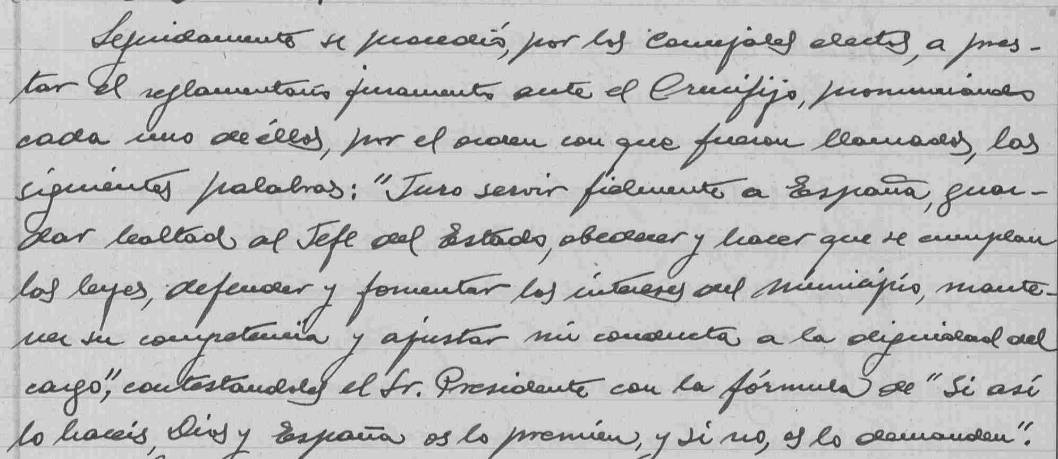 Seguidamente se procedió, por los Concejales electos, a pres-
tar el reglamentario juramento ante el Crucifijo, pronunciando
cada uno de éllos, por el orden con que fueron llamados, las
siguientes palabras: "Juro servir fielmente a España, guar-
dar lealtad al Jefe del Estado, obedecer y hacer que se cumplan
las leyes, defender y fomentar los intereses del Municipio, mante-
ner su competencia y ajustar mi conducta a la dignidad del
cargo", contestandoles el Sr. Presidente con la fórmula de "Si así
lo haceis, Dios y España os lo premien, y si no, os lo demanden".